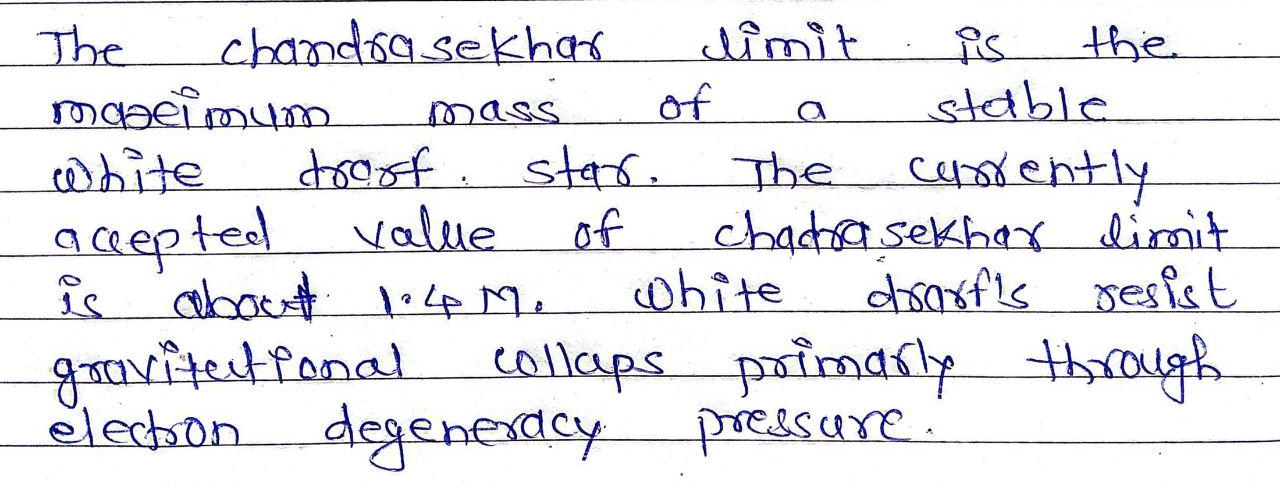 The chandrasekhar limit is the
maximum mass of a stable
white drorf. star. The currently
accepted value of chadrasekhar limit
is about 1.4 M. white drarf's resist
gravitational collaps primarly through
electron degeneracy pressure.